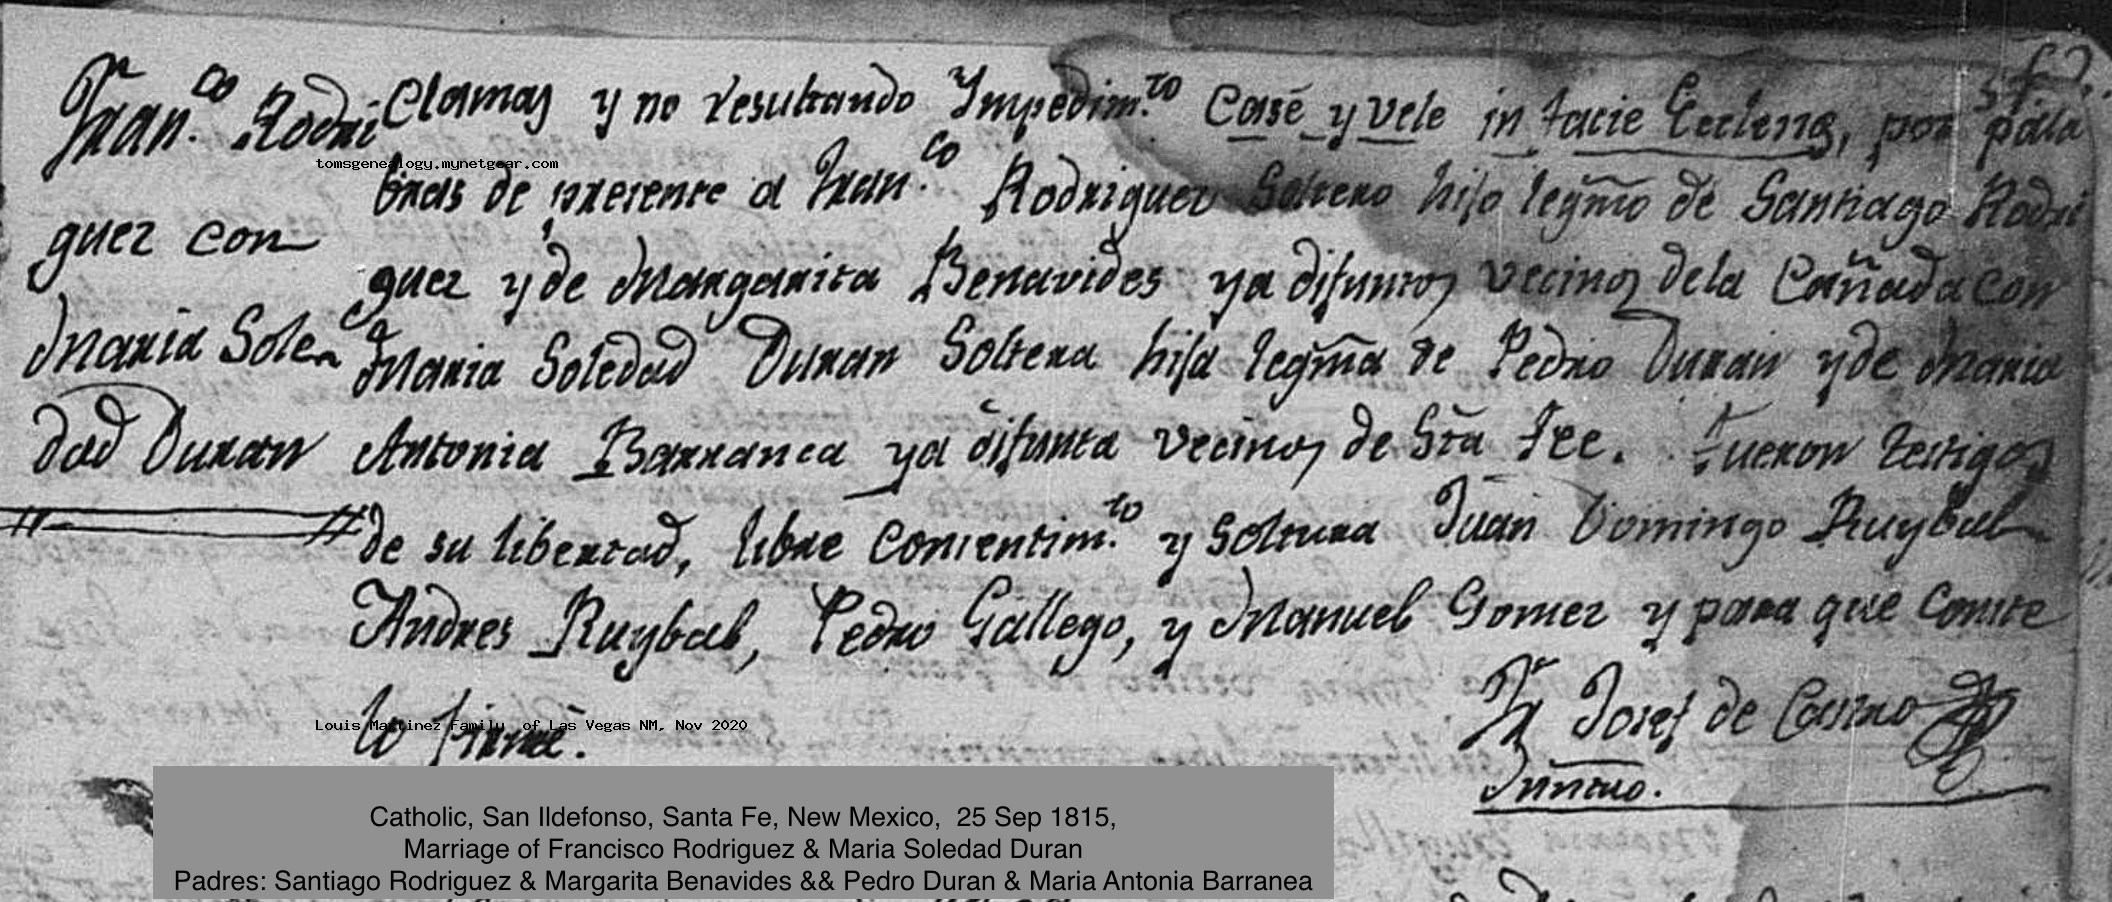 57.
Fran.co Rodri
guez con
Maria Sole
dad Duran
clamas y no resultando Impedim.to Casé y Vele in facie Eccleçia, por pala
bras de presente a Fran.co Rodriguez Soltero hijo legmo de Santiago Rodri
guez y de Margarita Benavides ya difuntos vecinos de la Cañada con
Maria Soledad Duran Soltera hija legma de Pedro Duran y de Maria
Antonia Barranca ya difunta vecinos de Sta Fee. Fueron testigos
de su libertad, libre consentim.to y soltura Juan Domingo Ruybal
Andres Ruybal, Pedro Gallego, y Manuel Gomez y para que conste
lo firmé.
Fr Josef de Castro
tomsgenealogy.mynetgear.com
Louis Martinez Family of Las Vegas NM, Nov 2020
Catholic, San Ildefonso, Santa Fe, New Mexico, 25 Sep 1815,
Marriage of Francisco Rodriguez & Maria Soledad Duran
Padres: Santiago Rodriguez & Margarita Benavides && Pedro Duran & Maria Antonia Barranea